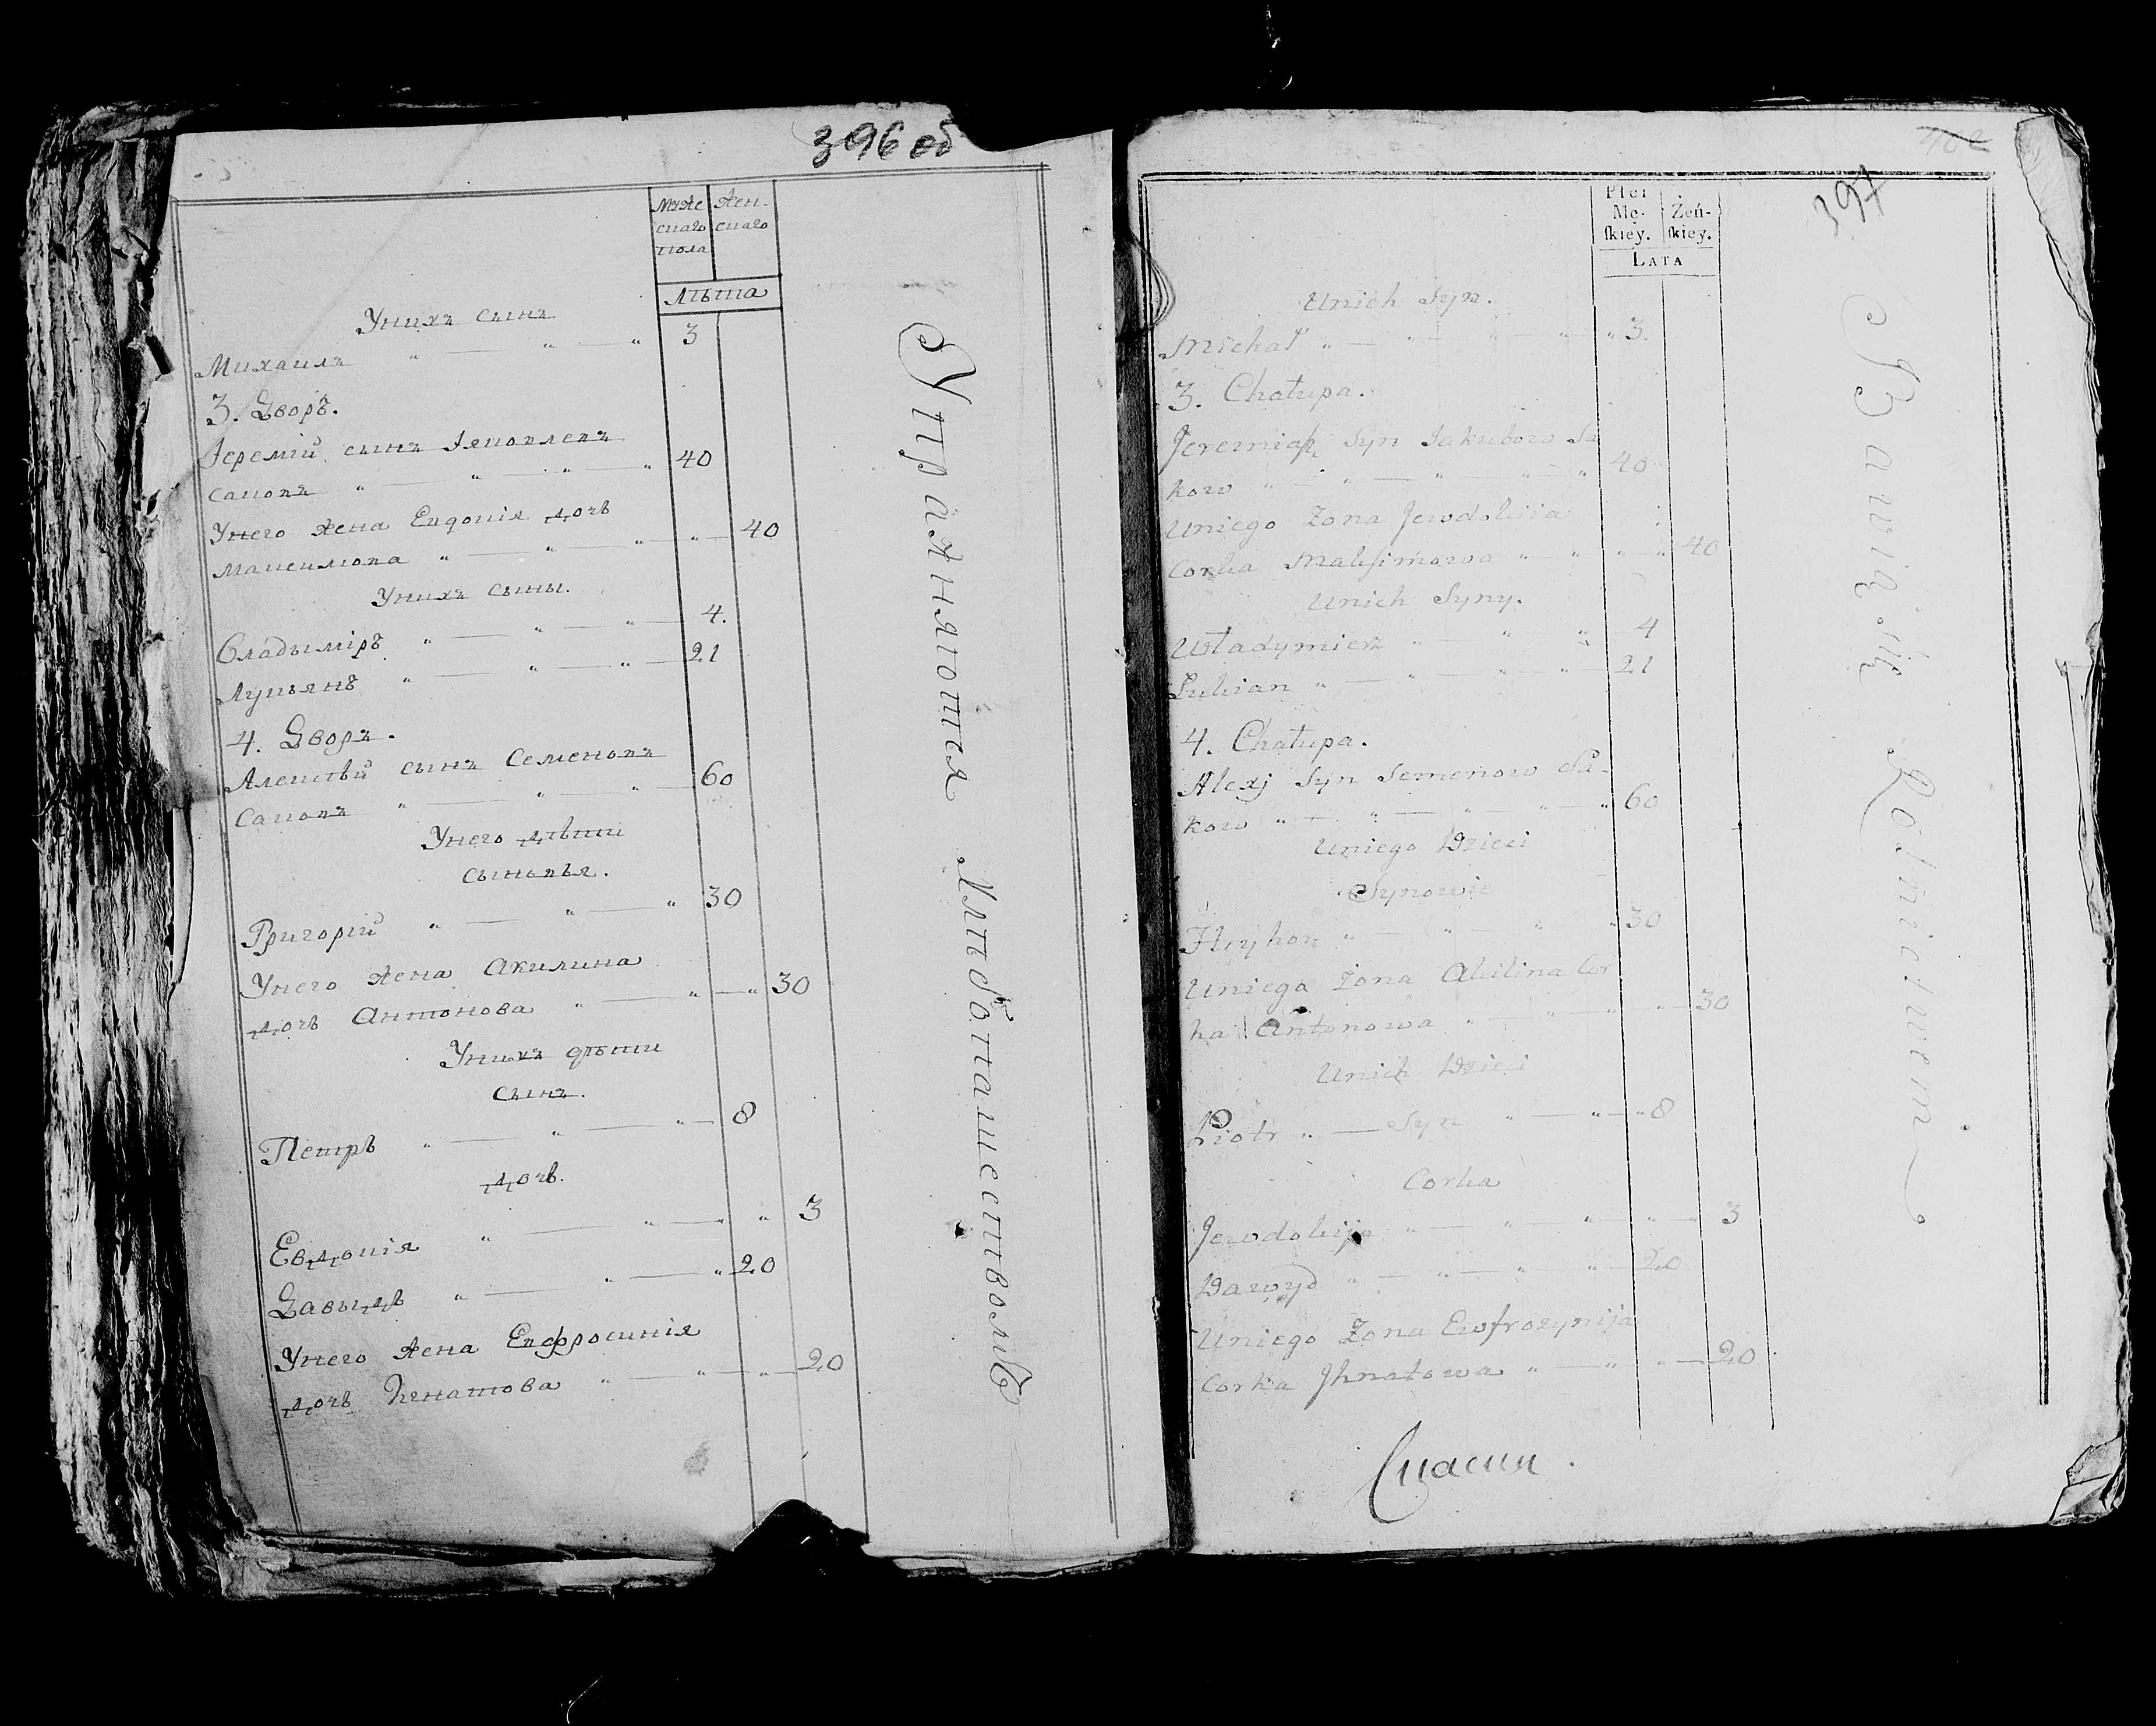 396 об
Мужескаго пола
Женскаго
Лѣта
Унихъ сынъ
Михаилъ " — " — " 3
3. Дворъ.
Іеремій сынъ Яковлевъ
Саковъ " — " — " 40
Унего жена Евдокія дочь
Максимова " — " — " — " — 40
Унихъ сыны.
Владыміръ " — " — " — 4.
Лукьянъ " — " — " — 21
4. Дворъ.
Алексѣй сынъ Семеновъ
Саковъ " — " — " — 60
Унего дѣти
сыновья.
Григорій " — " — " 30
Унего жена Акилина
дочь Антонова " — " — " 30
Унихъ дѣти
сынъ.
Петръ " — " — " — 8
дочь.
Евдокія " — " — " " 3
Давыдъ " — " — " 20
Унего жена Евфросинія
дочь Игнатова " — " — " — 20
Упражняются Хлѣбопашествомъ
402
397
Płci Mę-skiey.
Żeń-skiey.
LATA
Unich Syn.
Michał " — " — " — " — " 3.
3. Chałupa.
Jeremiasz Syn Jakubow Sa
kow " — " — " — " 40
Uniego Zona Jewdokija
Corka Maksimowa " — " " " 40
Unich Syny.
Władymierz " — " — " 4
Łukian " — " — " — " — 21
4. Chałupa.
Alexj Syn Semenow Sa-
kow " — " — " — " — " 60
Uniego Dzieci
Synowie
Hryhor " — " — " — " 30
Uniego Zona Akilina Cor
ka Antonowa " — " — " — " — 30
Unich Dzieci
Piotr " — Syn " — " — " 8
Corka
Jewdokija " — " — " — " — " 3
Dawyd " — " — " — " — 20
Uniego Zona Ewfrozynija
Corka Jhnatowa " — " — " — 20
Bawią się Rolnictwem